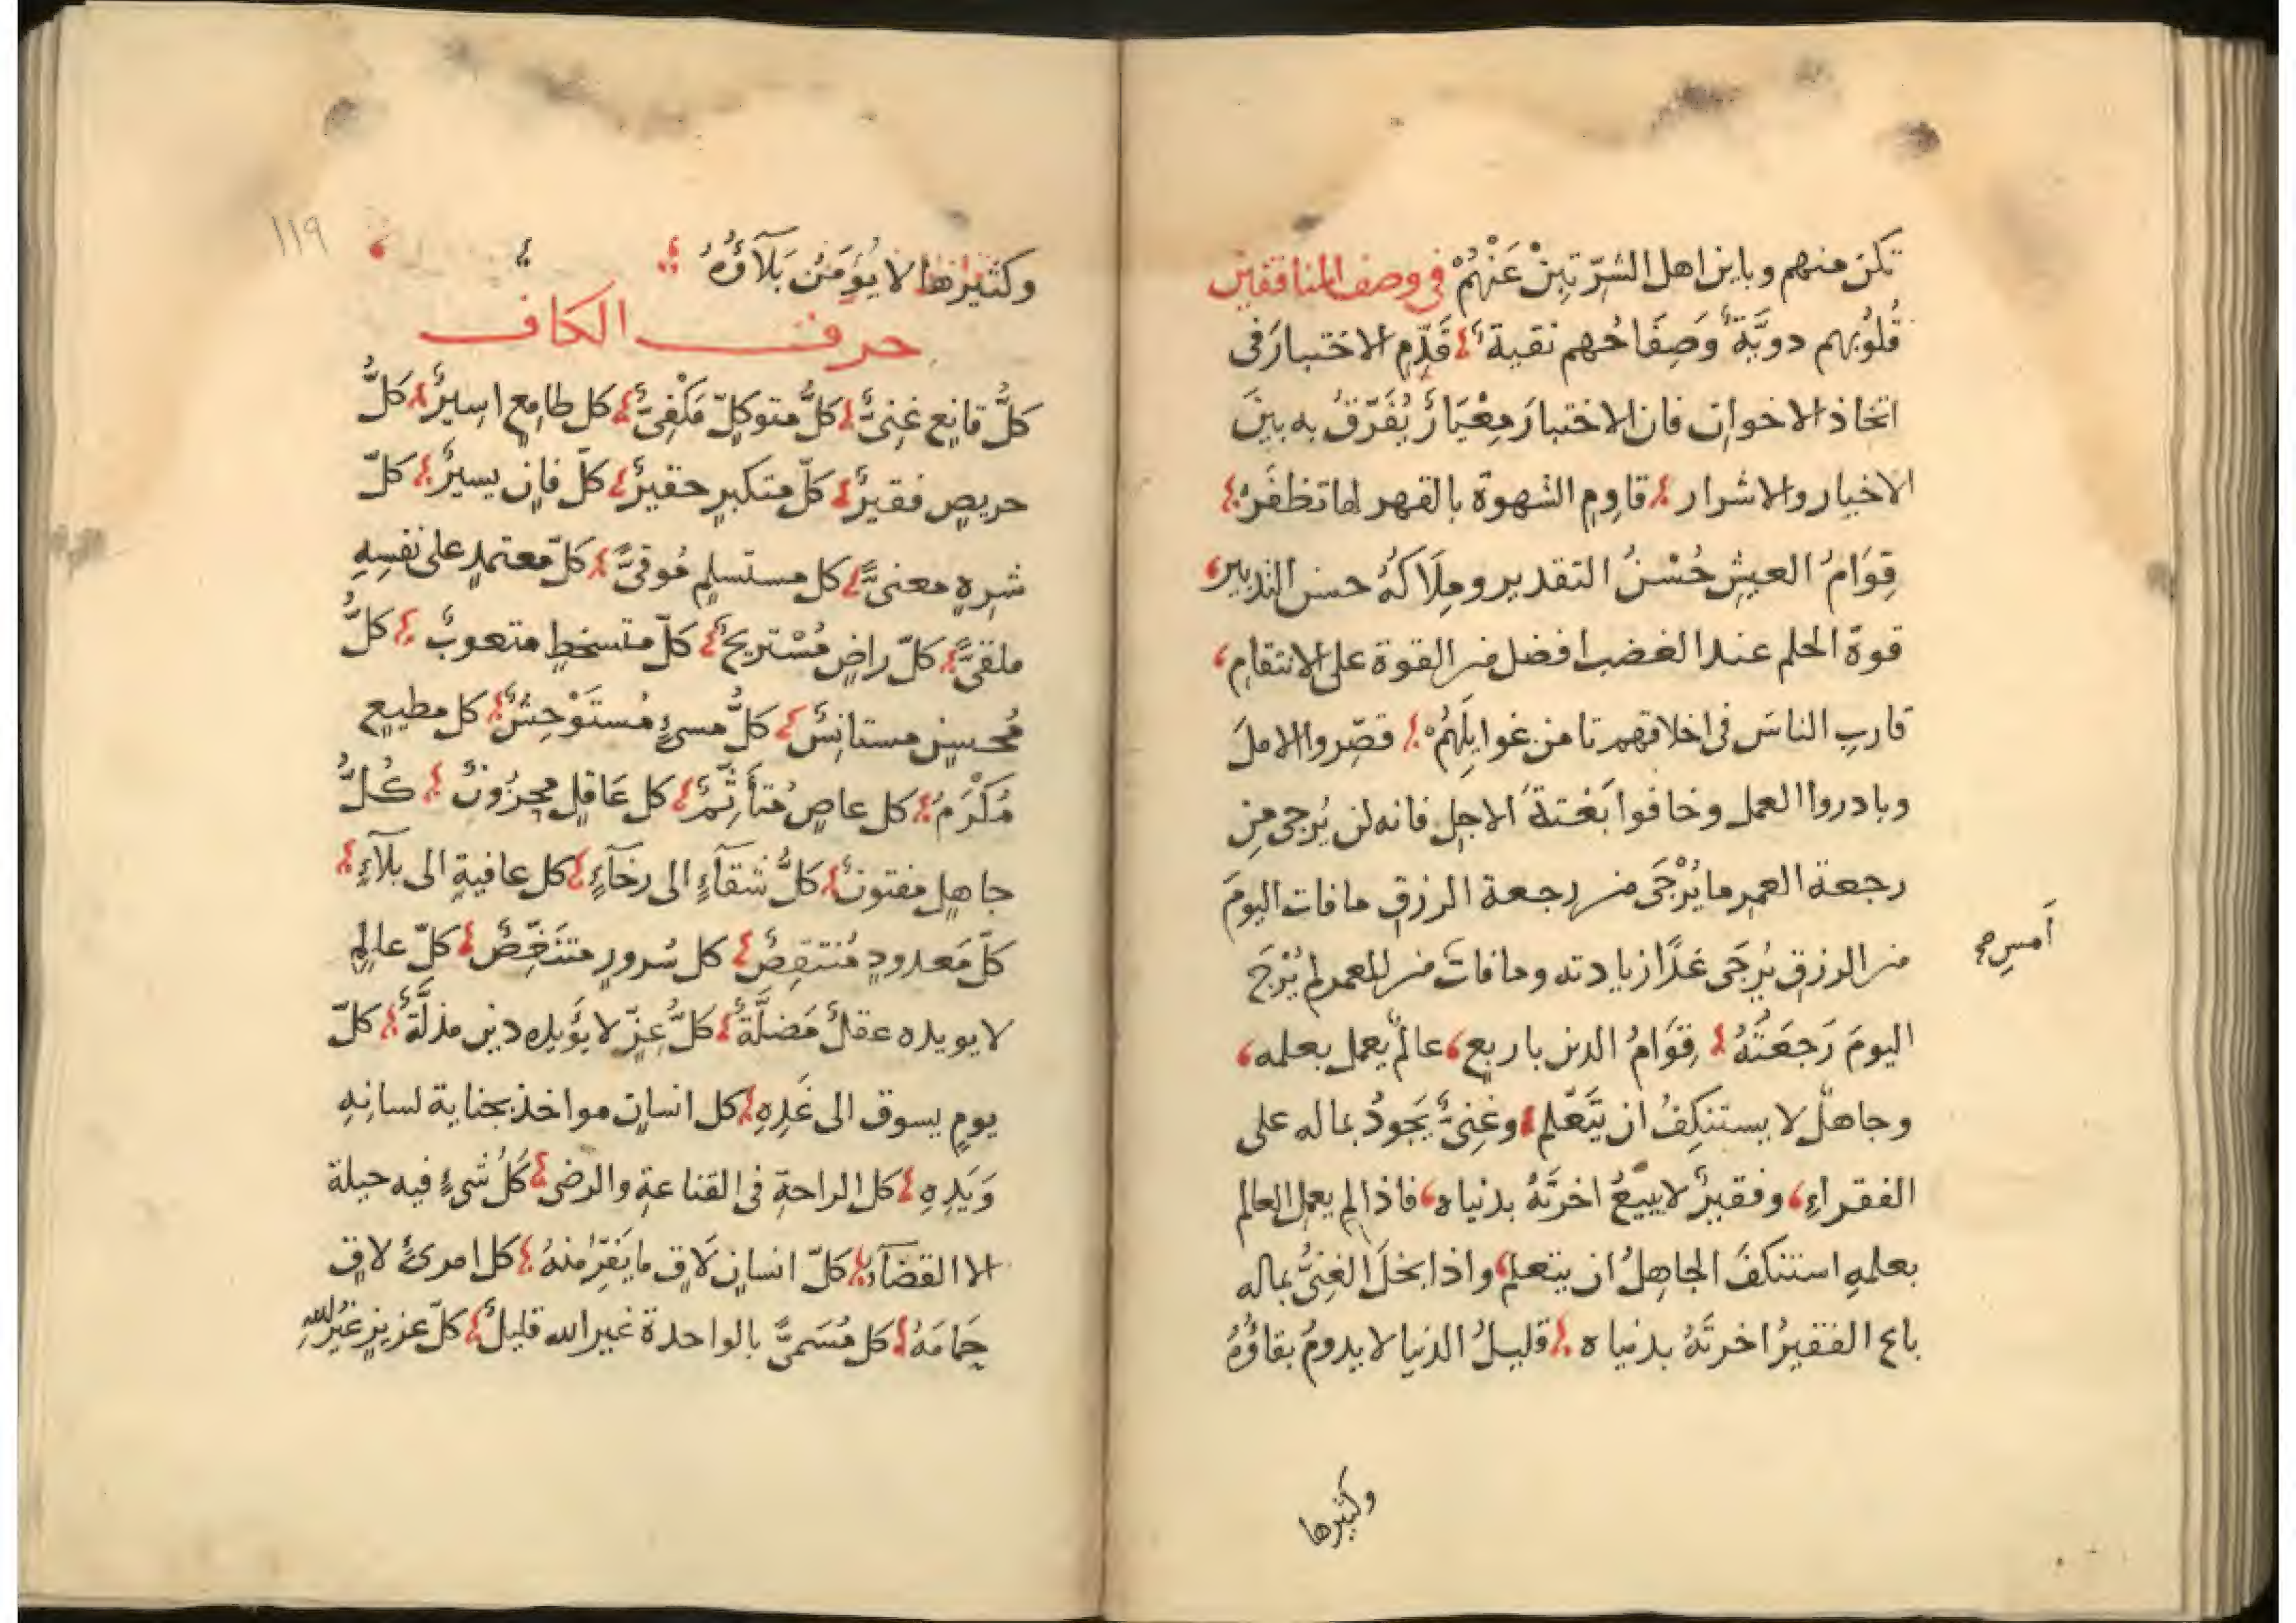 تكن منهم وباين اهل الشرّ تبِنْ عَنْهُمْ في وصف المنافقين
قُلُوُبهم دويَّةٌ وَصِفَاحُهم نقية قَدِّمِ الاختبارَ في
اتخاذ الاخوان فان الاختبارَ مِعْيَارٌ يُفَرّقُ به بينَ
الاخيار والاشرار قاوِم الشهوة بالقهر لها تظفَرْ
قِوَامُ العيشِ حُسْنُ التقدير ومِلَاكهُ حسن التدبير
قوة الحلم عند الغضب افضل من القوة على الانتقام
قاربِ الناسَ في اخلاقهم تامن غوايِلَهُمْ قصِّروا الاملَ
وبادروا العمل وخافوا بَغْتةَ الاجل فانه لن يُرجى مِن
رجعة العمر ما يُرْجَى من رجعة الرزق ما فات اليومَ
من الرزق يُرجَى غدًا زيادته وما فات من العمر لم يُرْجَ
أمسِ صح
اليومَ رَجعَتُهُ قِوَامُ الدين باربعٍ عالمٌ يعمل بعلمه
وجاهلٌ لا يستنكِفُ ان يتَعّلم وغنِىٌّ يَجودُ بماله على
الفقراءِ وفقيرٌ لا يبيعُ اخرتَهُ بدنياه فاذا لم يعمل العالم
بعلمهِ استنكفَ الجاهِلُ ان يتعلم واذا بخلَ الغِنىُّ بماله
باع الفقيرُ اخرتَهُ بدنياه قليلُ الدنيا لا يدومُ بقاؤُهُ
وكثيرها
١١٩
وكثيرها لا يُؤمَنُ بَلَآؤُهُ
حرف الكاف
كلُّ قانِع غنِىٌّ كلُّ متوكلٍّ مَكْفِىٌّ كل طامِع اسِيرٌ كلُّ
حريصٍ فقيرٌ كلّ متكبرٍ حقيرٌ كلّ فانٍ يسيرٌ كلّ
شرِهٍ معنىًّ كل مستسلِمٍ مُوقىًّ كلّ معتمدٍ على نفسِهِ
ملقىًّ كلّ راضٍ مُسْتريحٌ كلّ متسخطٍ متعوبٌ كلُّ
مُحسِنٍ مستانِسٌ كلُّ مسىءٍ مُستَوْحِشٌ كل مطيعٍ
مُكْرَمٌ كل عاصٍ مُتأَثِّمٌ كل عَاقِلٍ محزُونٌ كُلُّ
جاهلٍ مفتونٌ كلُّ شقآءٍ الى رخآءٍ كل عافيةٍ الى بلآءٍ
كلّ مَعدودٍ مُنتقِصٌ كل سُرورٍ متنَغِّصٌ كلّ عالِمٍ
لا يويده عقلٌ مَضلَّةٌ كلُّ عِزّ لا يؤَيده دين مذلَّةٌ كلّ
يومٍ يسوق الى غَدِهِ كل انسانٍ مواخذ بجناية لسانِهِ
وَيَدِهِ كل الراحةِ في القناعةِ والرضى كلُ شىءٍ فيه حيلة
الا القضآءَ كلّ انسانٍ لَاقٍ ما يَفرّ منهُ كل امرئٍ لاقٍ
حِمَامَهُ كل مُسَمىًّ بالواحدة غير الله قليلٌ كلّ عزيزٍ غيرُ اللهِ